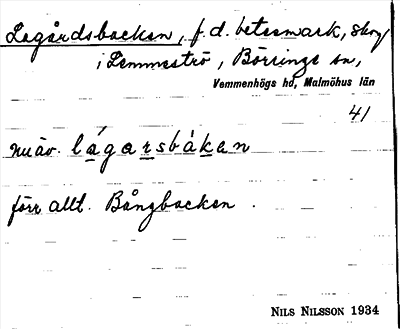 Lagårdsbacken, f.d. betesmark, skog
i Lemmeströ, Börringe sn,
Vemmenhögs hd, Malmöhus län
41
nuäv. lágarsbákan
förr allt. Bångbacken.
NILS NILSSON 1934